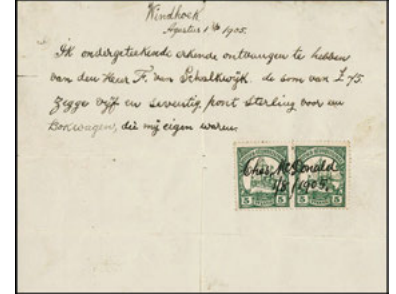 Windhoek
Agustus 1ste 1905.
Ik ondergeteekende erkende ontvangen te hebben
van den Heer F. van Schalkwijk de som van £ 75
Zegge vijf en seventig pont Sterling voor een
Bokwagen, die mij eigen waren.
Chas. McDonald
1/8/1905.
5 5 5 5